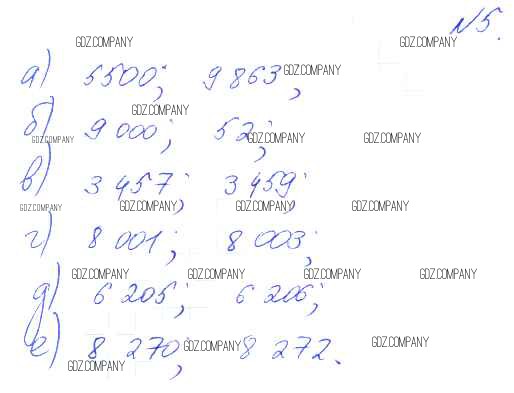 №5.
GDZ.COMPANY GDZ.COMPANY
а) 5500; 9 863; GDZ.COMPANY
GDZ.COMPANY
б) 9 000; 52;
GDZ.COMPANY GDZ.COMPANY GDZ.COMPANY
в) 3 457; 3 459;
GDZ.COMPANY GDZ.COMPANY GDZ.COMPANY GDZ.COMPANY
г) 8 001; 8 003;
GDZ.COMPANY GDZ.COMPANY GDZ.COMPANY GDZ.COMPANY
д) 6 205; 6 206;
е) 8 270; GDZ.COMPANY 8 272. GDZ.COMPANY
GDZ.COMPANY